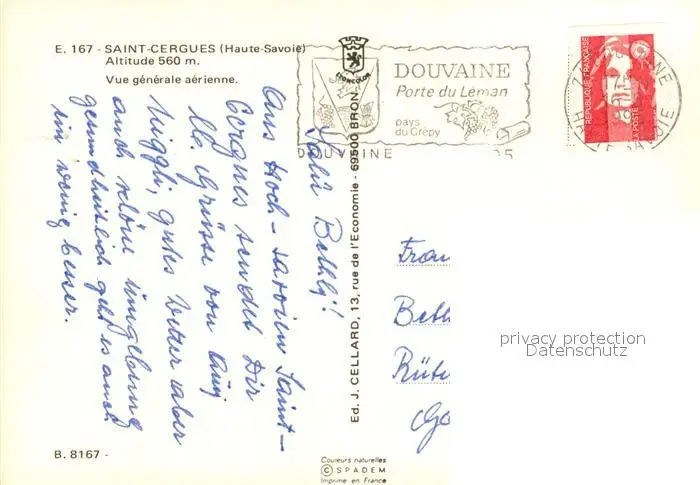 E. 167 - SAINT-CERGUES (Haute-Savoie)
Altitude 560 m.
Vue générale aérienne.
ETONCOLOR
DOUVAINE
Porte du Léman
pays
du Crépy
DOUVAINE
RÉPUBLIQUE FRANÇAISE
LA POSTE
Salü Bethly!
Aus Hoch-Savoien Saint-
Cergues sendet Dir
lb. Grüsse von
Huggli, gutes Wetter aber
auch schöne Umgebung
gesundheitlich geht es auch
ein wenig besser.
Ed. J. CELLARD, 13, rue de l'Economie - 69500 BRON
Frau
Beth
Rüti
privacy protection
Datenschutz
B. 8167 -
Couleurs naturelles
© SPADEM
Imprimé en France